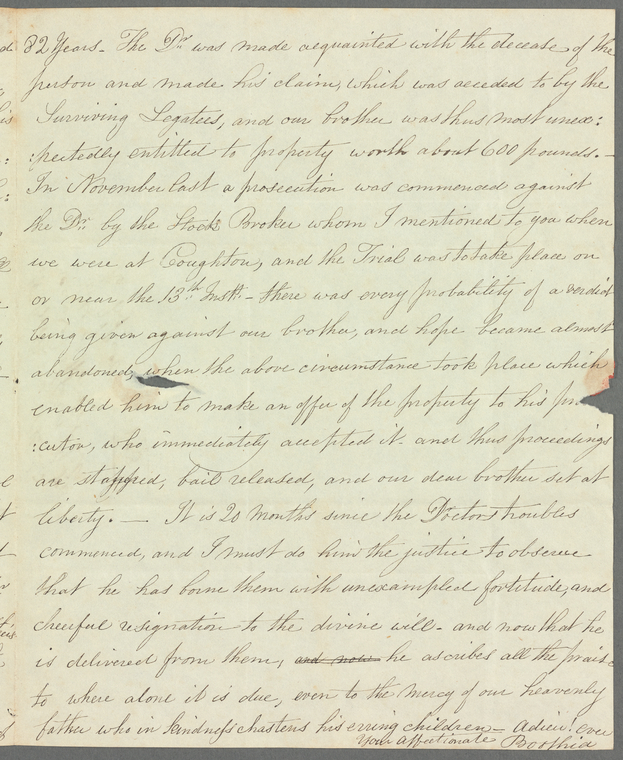 82 Years - The Dr. was made acquainted with the decease of the
person and made his claim, which was acceded to by the
Surviving Legatees, and our brother was thus most unex:
:pectedly entitled to property worth about 600 pounds. -
In November last a prosecution was commenced against
the Dr. by the Stock Broker whom I mentioned to you when
we were at Coughton, and the Trial was to take place on
or near the 13th Inst. - there was every probability of a verdict
being given against our brother, and hope became almost
abandoned, when the above circumstance took place which
enabled him to make an offer of the property to his
:cutor, who immediately accepted it - and thus proceedings
are stopped, bail released, and our dear brother set at
liberty. — It is 20 months since the Doctors troubles
commenced, and I must do him the justice to observe
that he has borne them with unexampled fortitude, and
cheerful resignation to the divine will - and now that he
is delivered from them, and now he ascribes all the praise
to where alone it is due, even to the mercy of our heavenly
father who in kindness chastens his erring children - Adieu! ever
Your affectionate Boothia